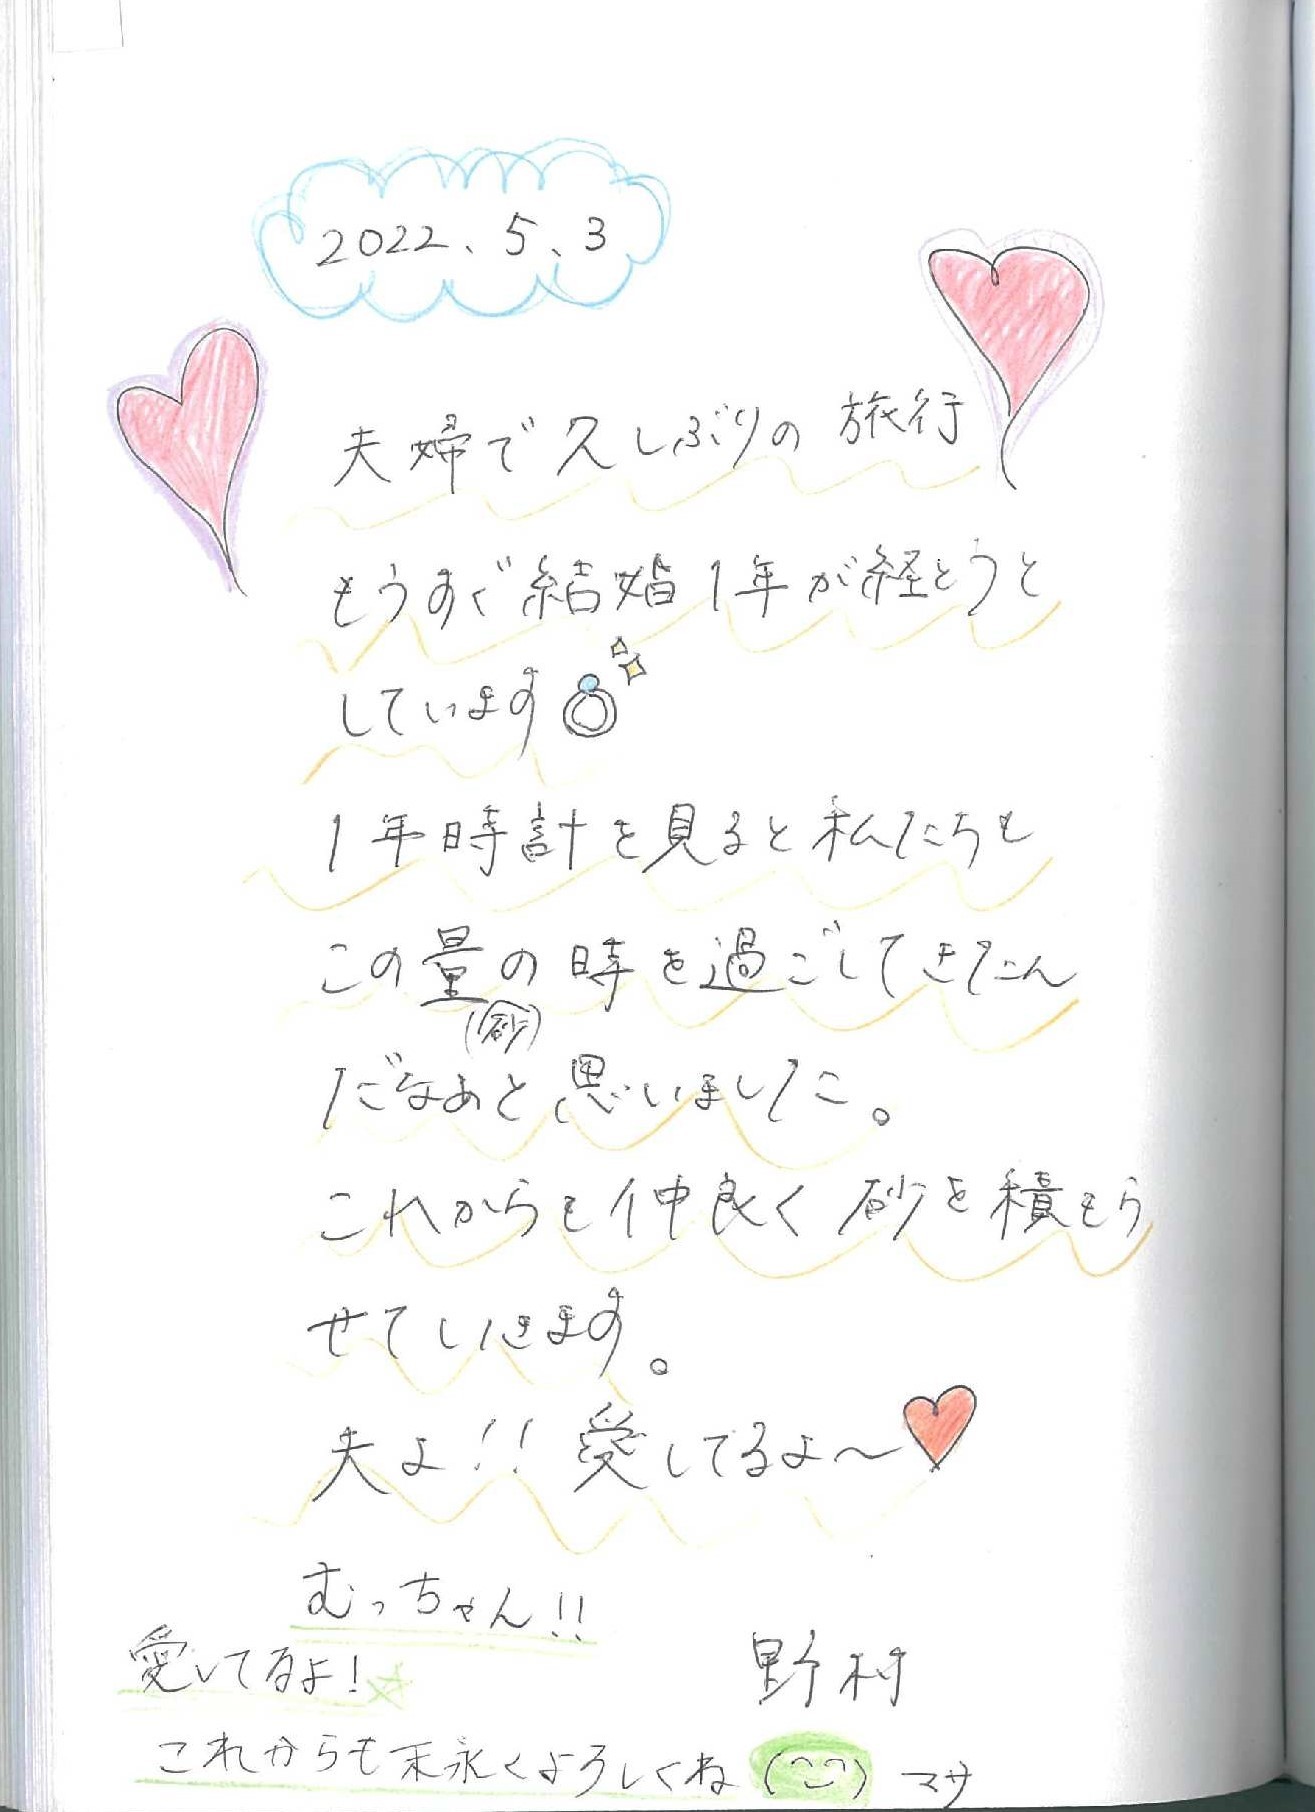 2022、5、3
夫婦で久しぶりの旅行
もうすぐ結婚1年が経とうと
しています
1年時計を見ると私たちも
この量の時を過ごしてきたん
(砂)
だなあと思いました。
これからも仲良く砂を積もら
せていきます。
夫よ!! 愛してるよ〜
むっちゃん!!
愛してるよ!
野村
これからも末永くよろしくね マサ